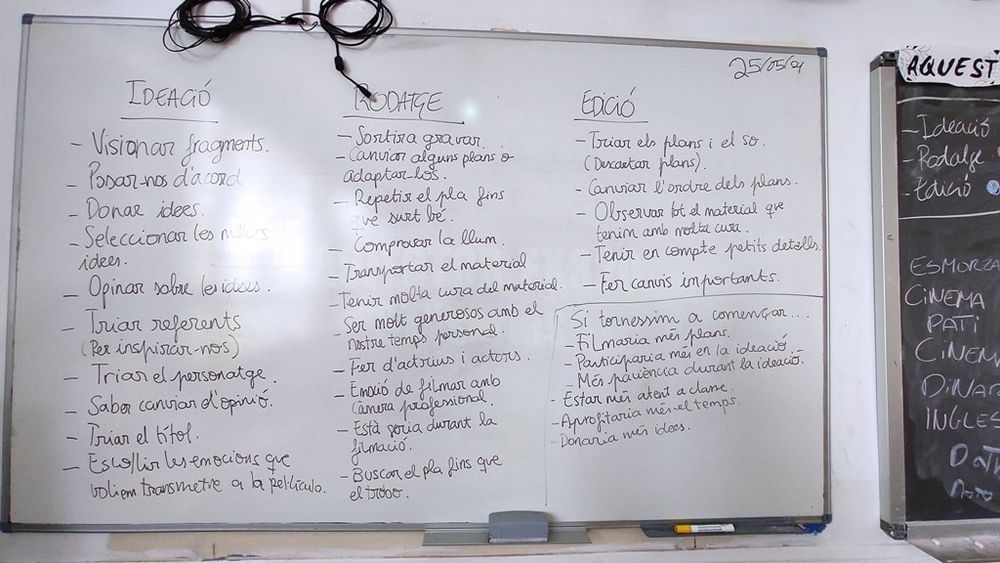 25/05/21
IDEACIÓ
- Visionar fragments.
- Posar-nos d'acord
- Donar idees.
- Seleccionar les millors
idees.
- Opinar sobre les idees.
- Triar referents
(Per inspirar-nos)
- Triar el personatge.
- Saber canviar d'opinió.
- Triar el títol.
- Escollir les emocions que
volíem transmetre a la pel·lícula.
RODATGE
- Sortir a gravar.
- Canviar alguns plans o
adaptar-los.
- Repetir el pla fins
que surt bé.
- Comprovar la llum.
- Transportar el material
- Tenir molta cura del material.
- Ser molt generosos amb el
nostre temps personal.
- Fer d'actrius i actors.
- Emoció de filmar amb
càmera professional.
- Està seria durant la
filmació.
- Buscar el pla fins que
el trobo.
EDICIÓ
- Triar els plans i el so.
(Descartar plans).
- Canviar l'ordre dels plans.
- Observar tot el material que
tenim amb molta cura.
- Tenir en compte petits detalls.
- Fer canvis importants.
Si tornessim a començar...
- Filmaria més plans.
- Participaria més en la ideació.
- Més paciència durant la ideació.
- Estar més atent a classe.
- Aprofitaria més el temps.
- Donaria més idees.
AQUEST
- Ideació
- Rodatge
- Edició
ESMORZA
CINEMA
PATI
CINEM
DINAR
INGLES